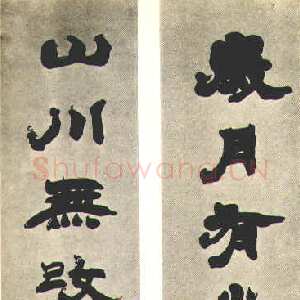 歲月有
山川無改
Shufawang.CN